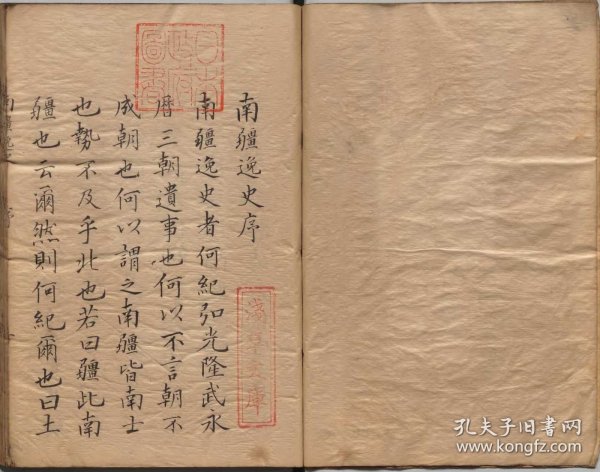 南疆逸史序
南疆逸史者何紀弘光隆武永
曆三朝遺事也何以不言朝不
成朝也何以謂之南疆皆南土
也勢不及乎北也若曰疆此南
疆也云爾然則何紀爾也曰土
淺草文庫
孔夫子旧书网
www.kongfz.com